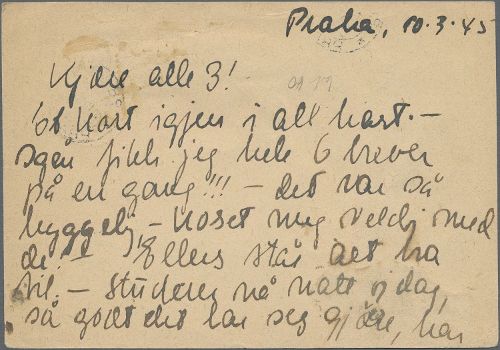 Praha, 10.3.45
Kjære alle 3!
Et kort igjen i all hast. -
Igår fikk jeg hele 6 brever
på en gang!!! - det var så
hyggelig - koset meg veldig med
de! - Ellers står det bra
til - studerer nå natt og dag,
så godt det lar seg gjøre, har